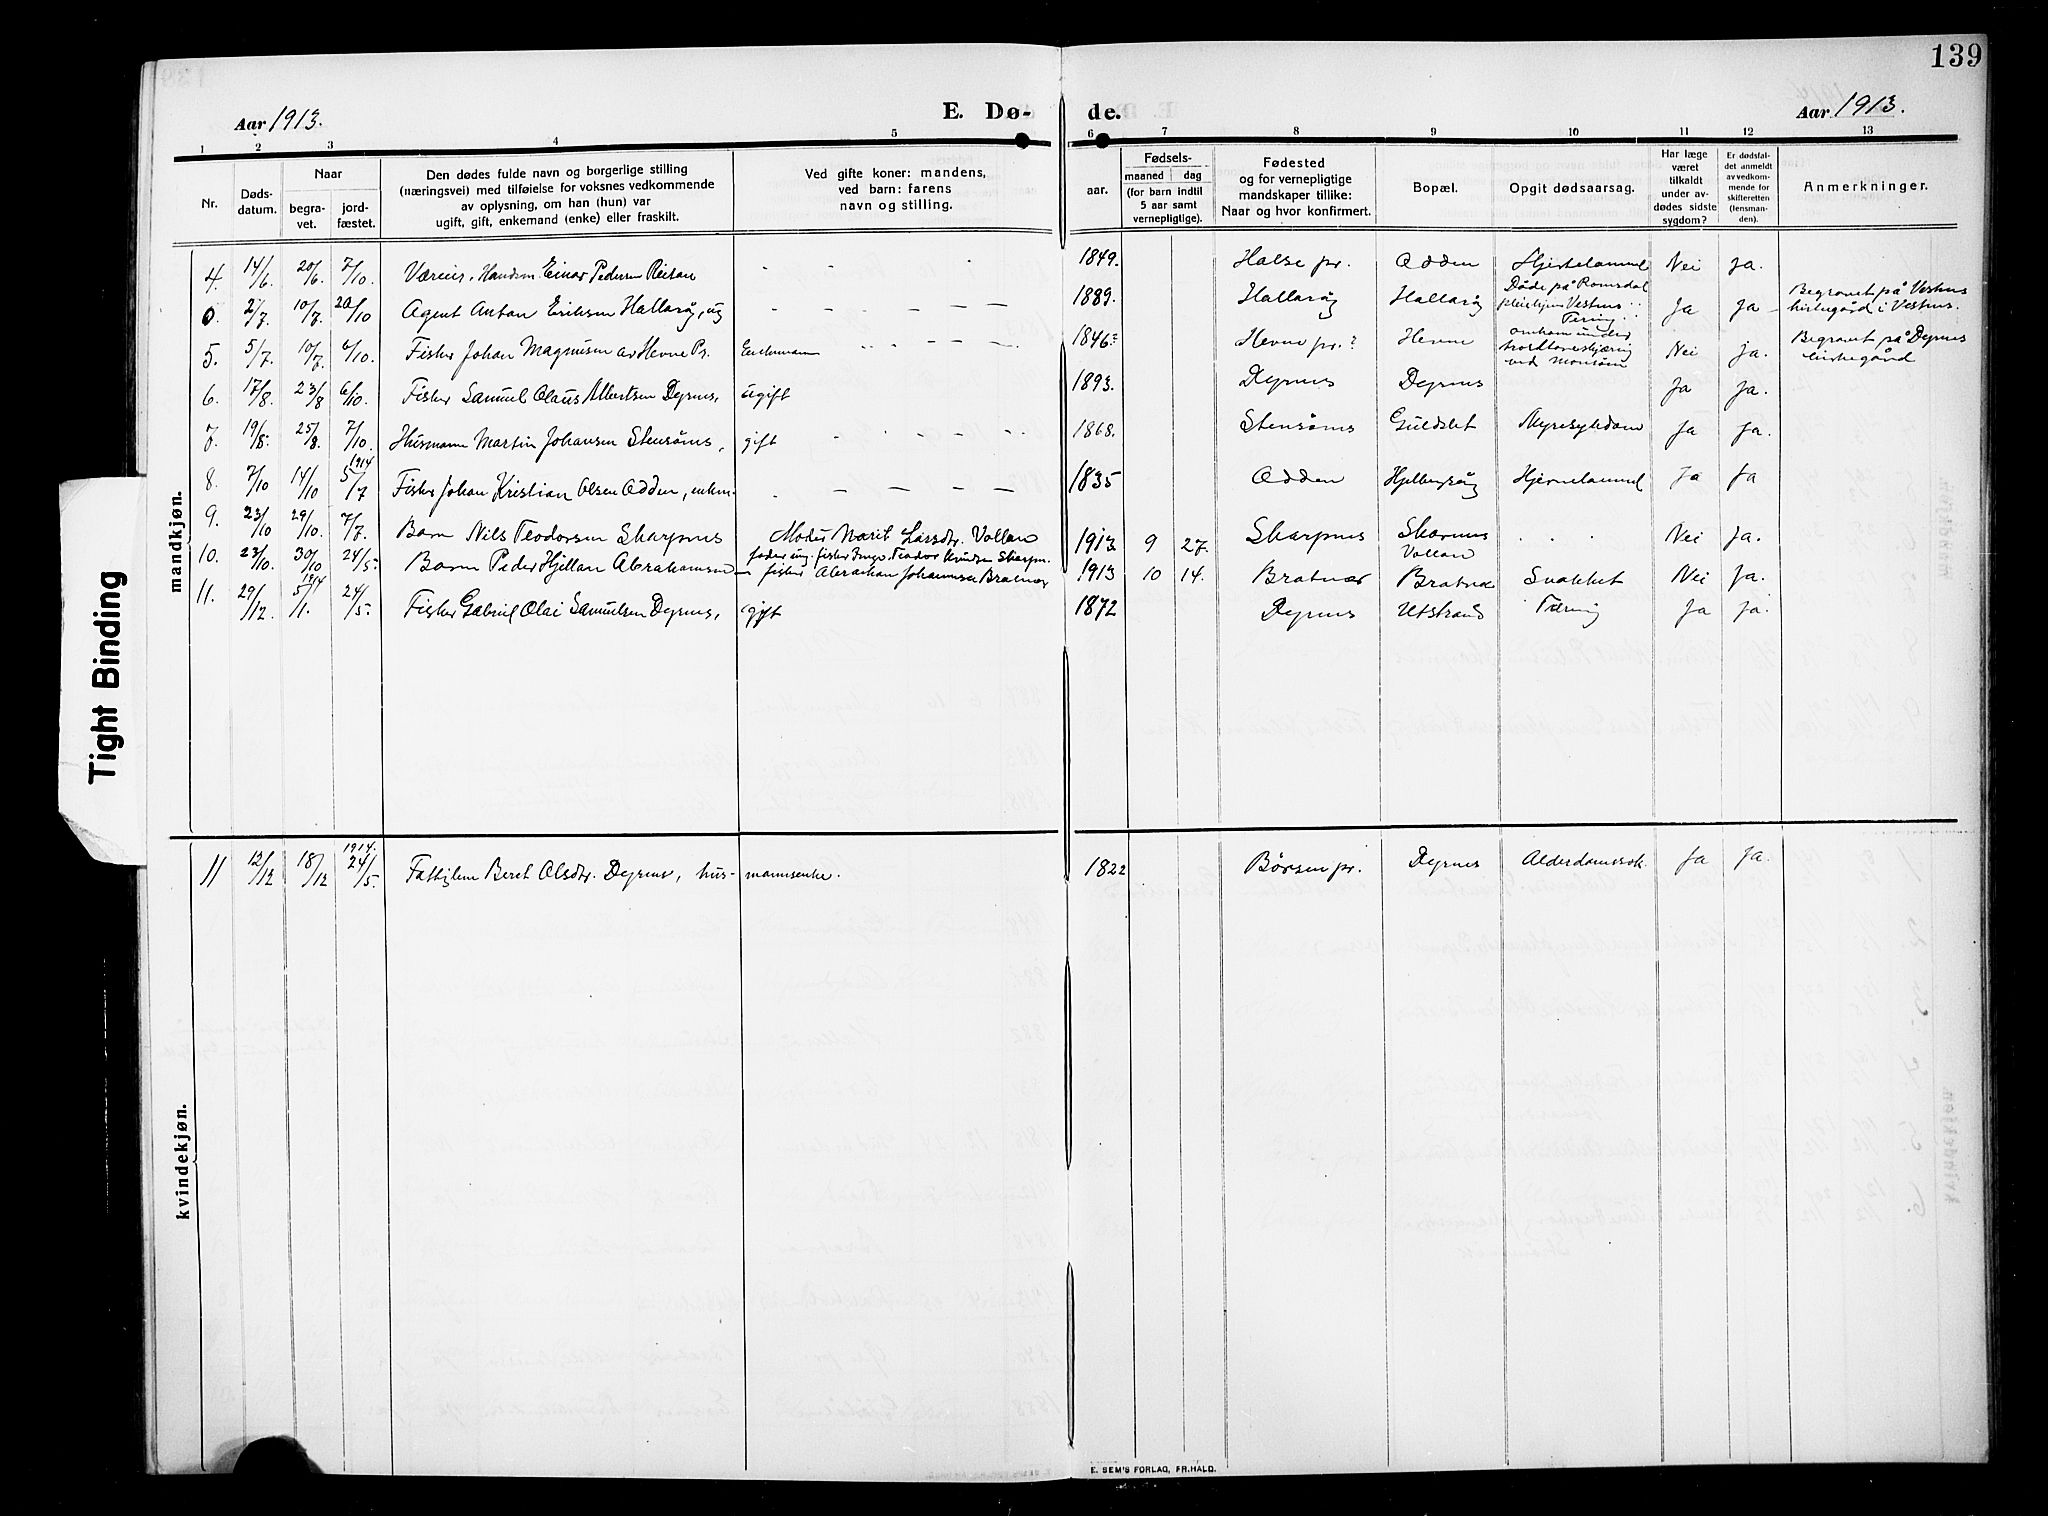 139
Aar 1913. E. Dø- de. Aar 1913.
1 2 3 4 5 6 7 8 9 10 11 12 13
Nr.
Døds-
datum.
Naar
begra-
vet.
jord-
fæstet.
Den dødes fulde navn og borgerlige stilling
(næringsvei) med tilføielse for voksnes vedkommende
av oplysning, om han (hun) var
ugift, gift, enkemand (enke) eller fraskilt.
Ved gifte koner: mandens,
ved barn: farens
navn og stilling.
aar.
Fødsels-
maaned dag
(for barn indtil
5 aar samt
vernepligtige).
Fødested
og for vernepligtige
mandskaper tillike:
Naar og hvor konfirmert.
Bopæl.
Opgit dødsaarsag.
Har læge
været
tilkaldt
under av-
dødes sidste
sygdom?
Er dødsfal-
det anmeldt
av vedkom-
mende for
skifteretten
(lensman-
den).
Anmerkninger.
mandkjøn.
4. 14/6. 20/6. 7/10 Einar Pedersen 1849. Halse pr. Odden Nei Ja.
0. 2/7. 10/7. 20/10 Agent Anton Eriksen Hallarøy, ug 1889. Hallarøy Hallarøy Døde på Romsdal pleiehjem Vestnes Tering Ja Ja Begravet på Vestnes kirkegård i Vestnes.
5. 5/7. 10/7. 6/10. Fisker Johan Magnusen av Hevne Pr. Enkemann 1846? Hevne pr.? Hevne omkom under Nei Ja. Begravet på Dyrnes kirkegård
6. 17/8. 23/8 6/10. Fisker Samuel Olaus Albertsen Dyrnes, ugift 1893. Dyrnes Dyrnes Ja Ja.
7. 19/8. 25/8. 7/10. Husmann Martin Johansen Stensønes, gift 1868. Stensønes Guldslet Nyresykdom Ja Ja.
8. 7/10 14/10 1914 5/7 Fisker Johan Kristian Olsen Odden, enkm. 1835 Odden Ja Ja
9. 23/10 29/10. 7/7. Barn Nils Teodorsen Skarpnes Moder Marit Larsdtr. Vollan fader ung. fisker Teodor Knudsen Skarpn. 1913 9 27. Skarpnes Vollan Nei Ja.
10. 23/10. 30/10 24/5 Barn Peder Hjellan Abrahamsen fisker Abraham Johannesen Bratnes 1913 10 14. Bratvær Nei Ja.
11. 29/12. 1914 5/1. 24/5. Fisker Gabriel Olai Samuelsen Dyrnes, gift 1872 Dyrnes Utstrand Tæring Ja Ja.
kvindekjøn.
11 12/12 18/12 1914. 24/5. Fattiglem Beret Olsdtr. Dyrnes, husmannsenke. 1822 Børsen pr. Dyrnes Ja Ja.
Tight Binding
E. SEM'S FORLAG, FR.HALD.